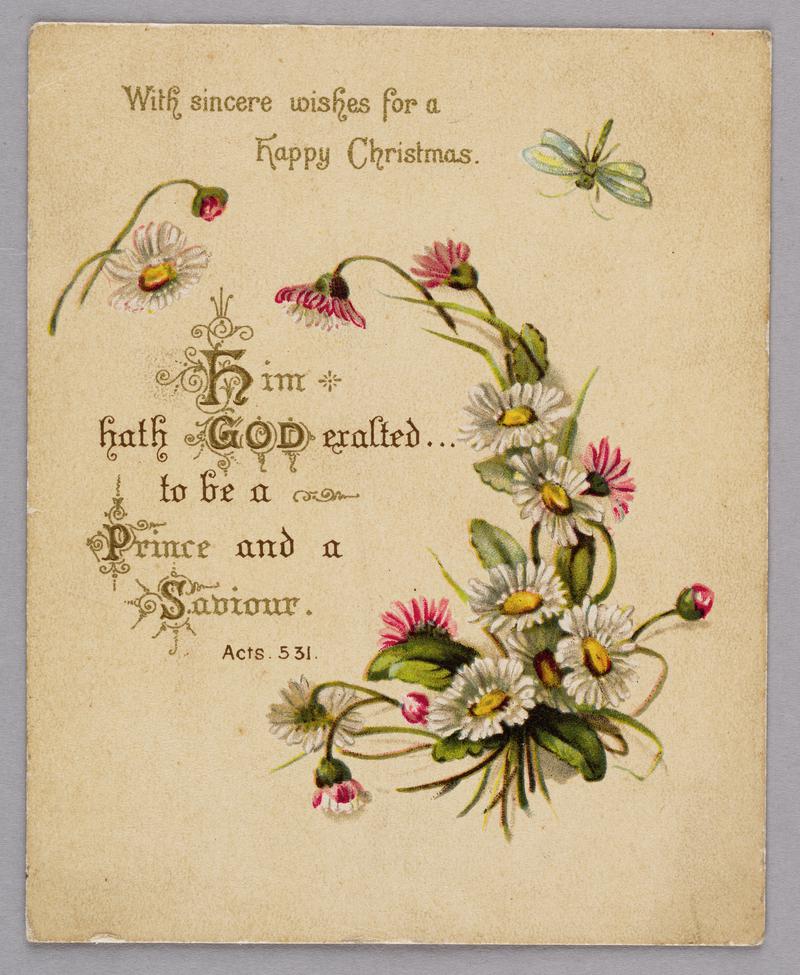 With sincere wishes for a
Happy Christmas.
Him
hath GOD exalted...
to be a
Prince and a
Saviour.
Acts. 5 31.